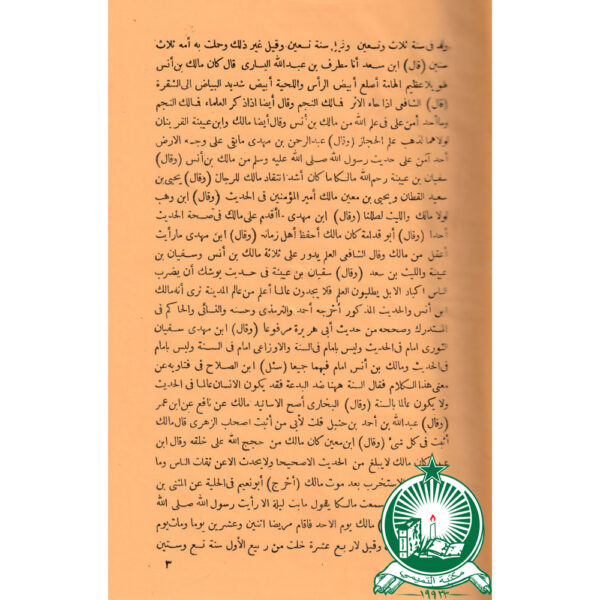 ولد فى سنة ثلاث وتسعين وقيل سنة تسعين وقيل غير ذلك وحملت به أمه ثلاث
سنين (قال) ابن سعد أنا مطرف بن عبدالله اليسارى قال كان مالك بن أنس
طويلا عظيم الهامة أصلع أبيض الرأس واللحية أبيض شديد البياض الى الشقرة
(قال) الشافعى اذا جاء الاثر فمالك النجم وقال أيضا اذا ذكر العلماء فمالك النجم
وما أحد أمن على فى علم الله من مالك بن أنس وقال أيضا مالك وابن عيينة القرينان
لولاهما لذهب علم الحجاز (وقال) عبدالرحمن بن مهدى مابقى على وجه الارض
أحد آمن على حديث رسول الله صلى الله عليه وسلم من مالك بن أنس (وقال)
سفيان بن عيينة رحم الله مالكا ما كان أشد انتقاد مالك للرجال (وقال) يحيى بن
سعيد القطان ويحيى بن معين مالك أمير المؤمنين فى الحديث (وقال) ابن وهب
لولا مالك والليث لضللنا (وقال) ابن مهدى ماأقدم على مالك فى صحة الحديث
أحدا (وقال) أبو قدامة كان مالك أحفظ أهل زمانه (وقال) ابن مهدى مارأيت
أعقل من مالك وقال الشافعى العلم يدور على ثلاثة مالك بن أنس وسفيان بن
عيينة والليث بن سعد (وقال) سفيان بن عيينة فى حديث يوشك أن يضرب
الناس اكباد الابل يطلبون العلم فلا يجدون عالما أعلم من عالم المدينة نرى أنه مالك
ابن أنس والحديث المذكور أخرجه أحمد والترمذى وحسنه والنسائى والحاكم فى
المستدرك وصححه من حديث أبى هريرة مرفوعا (وقال) ابن مهدى سفيان
الثورى امام فى الحديث وليس بامام فى السنة والاوزاعى امام فى السنة وليس بامام
فى الحديث ومالك بن أنس امام فيهما جميعا (سئل) ابن الصلاح فى فتاويه عن
معنى هذا الكلام فقال السنة ههنا ضد البدعة فقد يكون الانسان عالما فى الحديث
ولا يكون عالما بالسنة (وقال) البخارى أصح الاسانيد مالك عن نافع عن ابن عمر
(وقال) عبدالله بن أحمد بن حنبل قلت لأبى من أثبت اصحاب الزهرى قال مالك
أثبت فى كل شئ (وقال) ابن معين كان مالك من حجج الله على خلقه وقال ابن
كان مالك لا يبلغ من الحديث الاصحيحا ولا يحدث الا عن ثقات الناس وما
ستخرب بعد موت مالك (أخرج) أبو نعيم فى الحلية عن المثنى بن
سمعت مالكا يقول مابت ليلة الا رأيت رسول الله صلى الله
مالك يوم الاحد فاقام مريضا اثنين وعشرين يوما ومات يوم
وقيل لاربع عشرة خلت من ربيع الأول سنة تسع وستين
٣
مكتبة التميمي